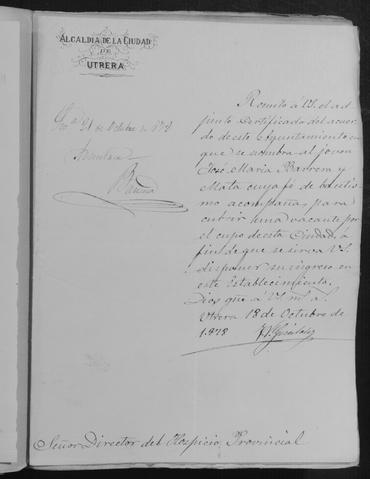 ALCALDIA DE LA CIUDAD
DE
UTRERA
21 de Octubre de 1878
Remito á VS. el ad
junto Certificado del acuer
do de este Ayuntamiento en
que se nombra al joven
José Maria Barrera y
Mata cuya fé de bautis
mo acompaña, para
cubrir una vacante por
el cupo de esta Ciudad, á
fin de que se sirva VS.
disponer su ingreso en
ese Establecimiento.
Dios gue á VS. m.s a.s
Utrera 18 de Octubre de
1878
Señor Director del Hospicio Provincial